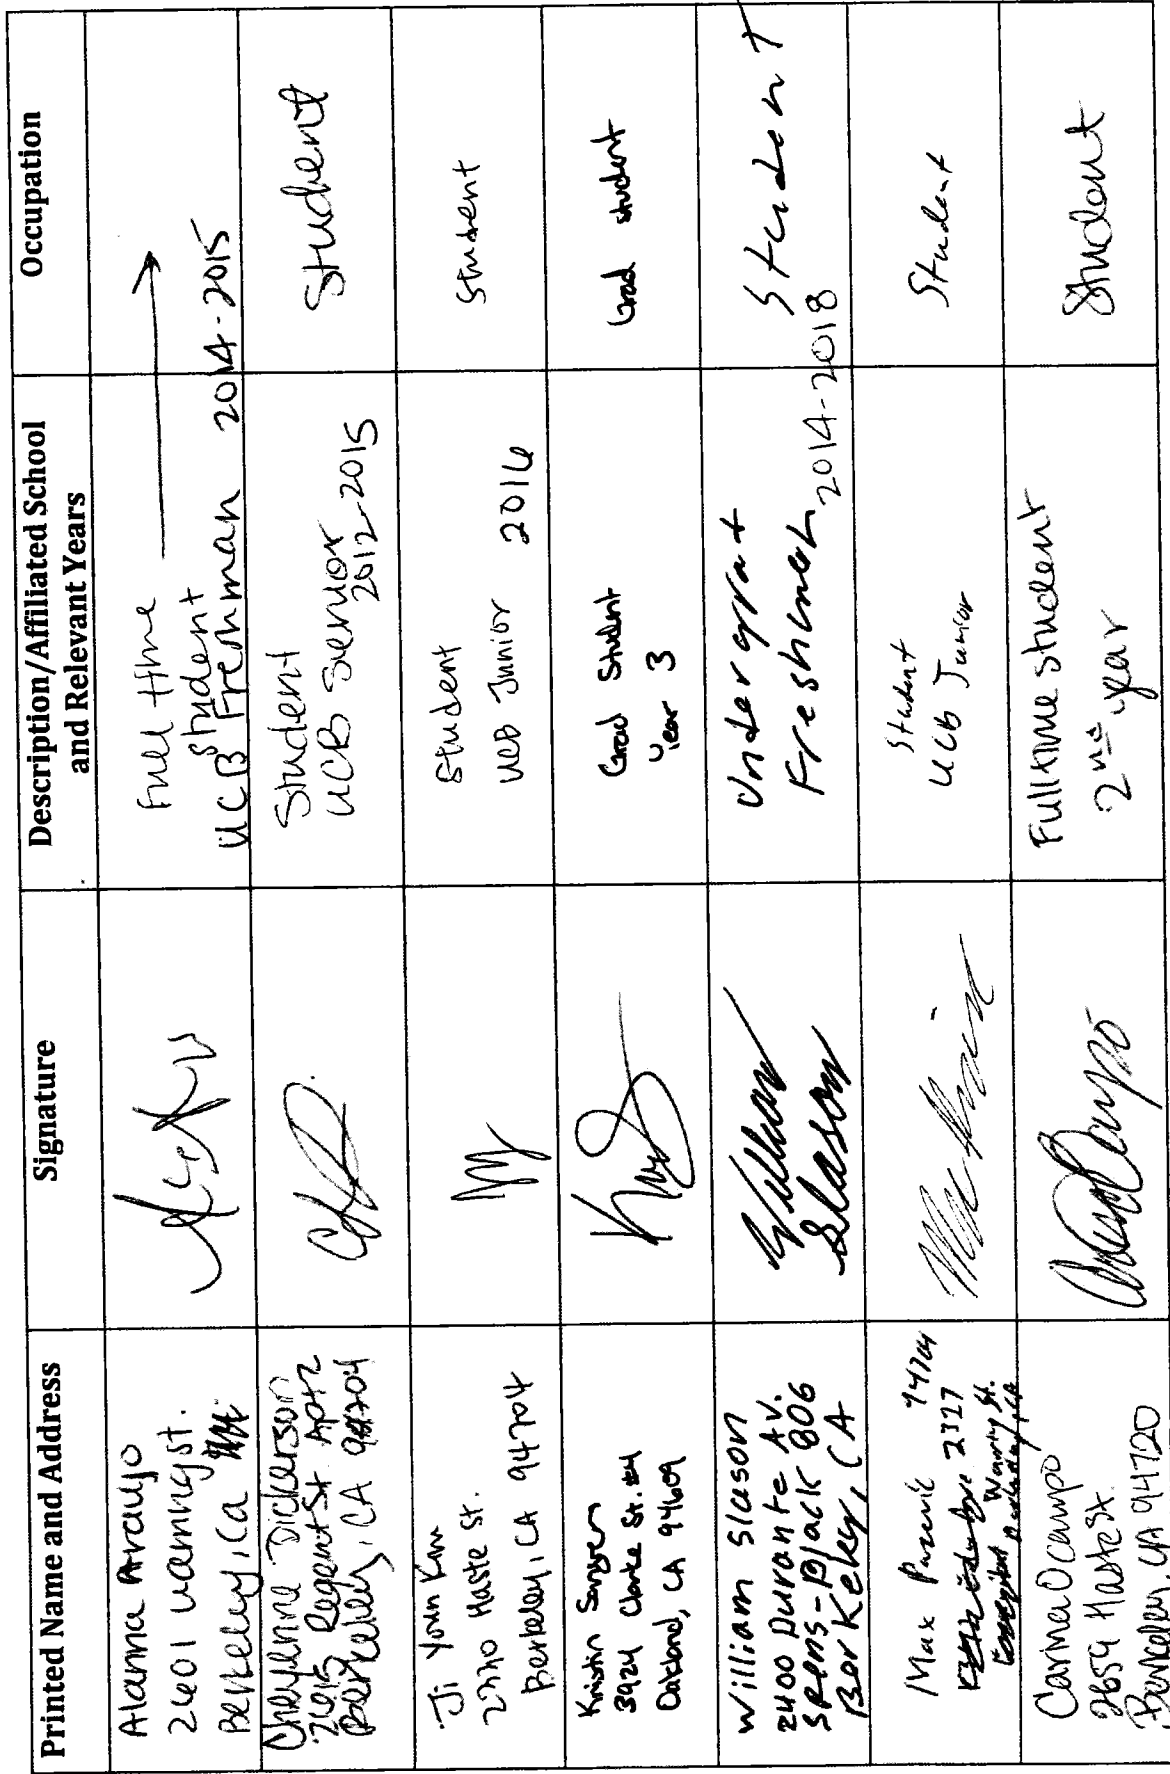 Printed Name and Address
Signature
Description/Affiliated School
and Relevant Years
Occupation
Alanna Araujo
2601 Warring St.
Berkeley, Ca
Full time
student
UCB Freshman 2014-2015
Cheylynne Dickerson
2615 Regent St. Apt 2
Berkeley, CA 94704
Student
UCB Senior
2012-2015
Student
Ji Youn Kim
2770 Haste St.
Berkeley, CA 94704
Student
UCB Junior 2016
Student
Kristin
3924 Clarke St. #4
Oakland, CA 94609
Grad Student
Year 3
Grad student
William Slason
2400 Durante Av.
Spens-Black 806
BerKeley, CA
William
Slason
Undergrat
Freshman 2014-2018
Student
Max
2327
Student
UCB Junior
Student
Carina Ocampo
2659 Haste St.
Berkeley, CA 94720
Full time student
2nd year
Student